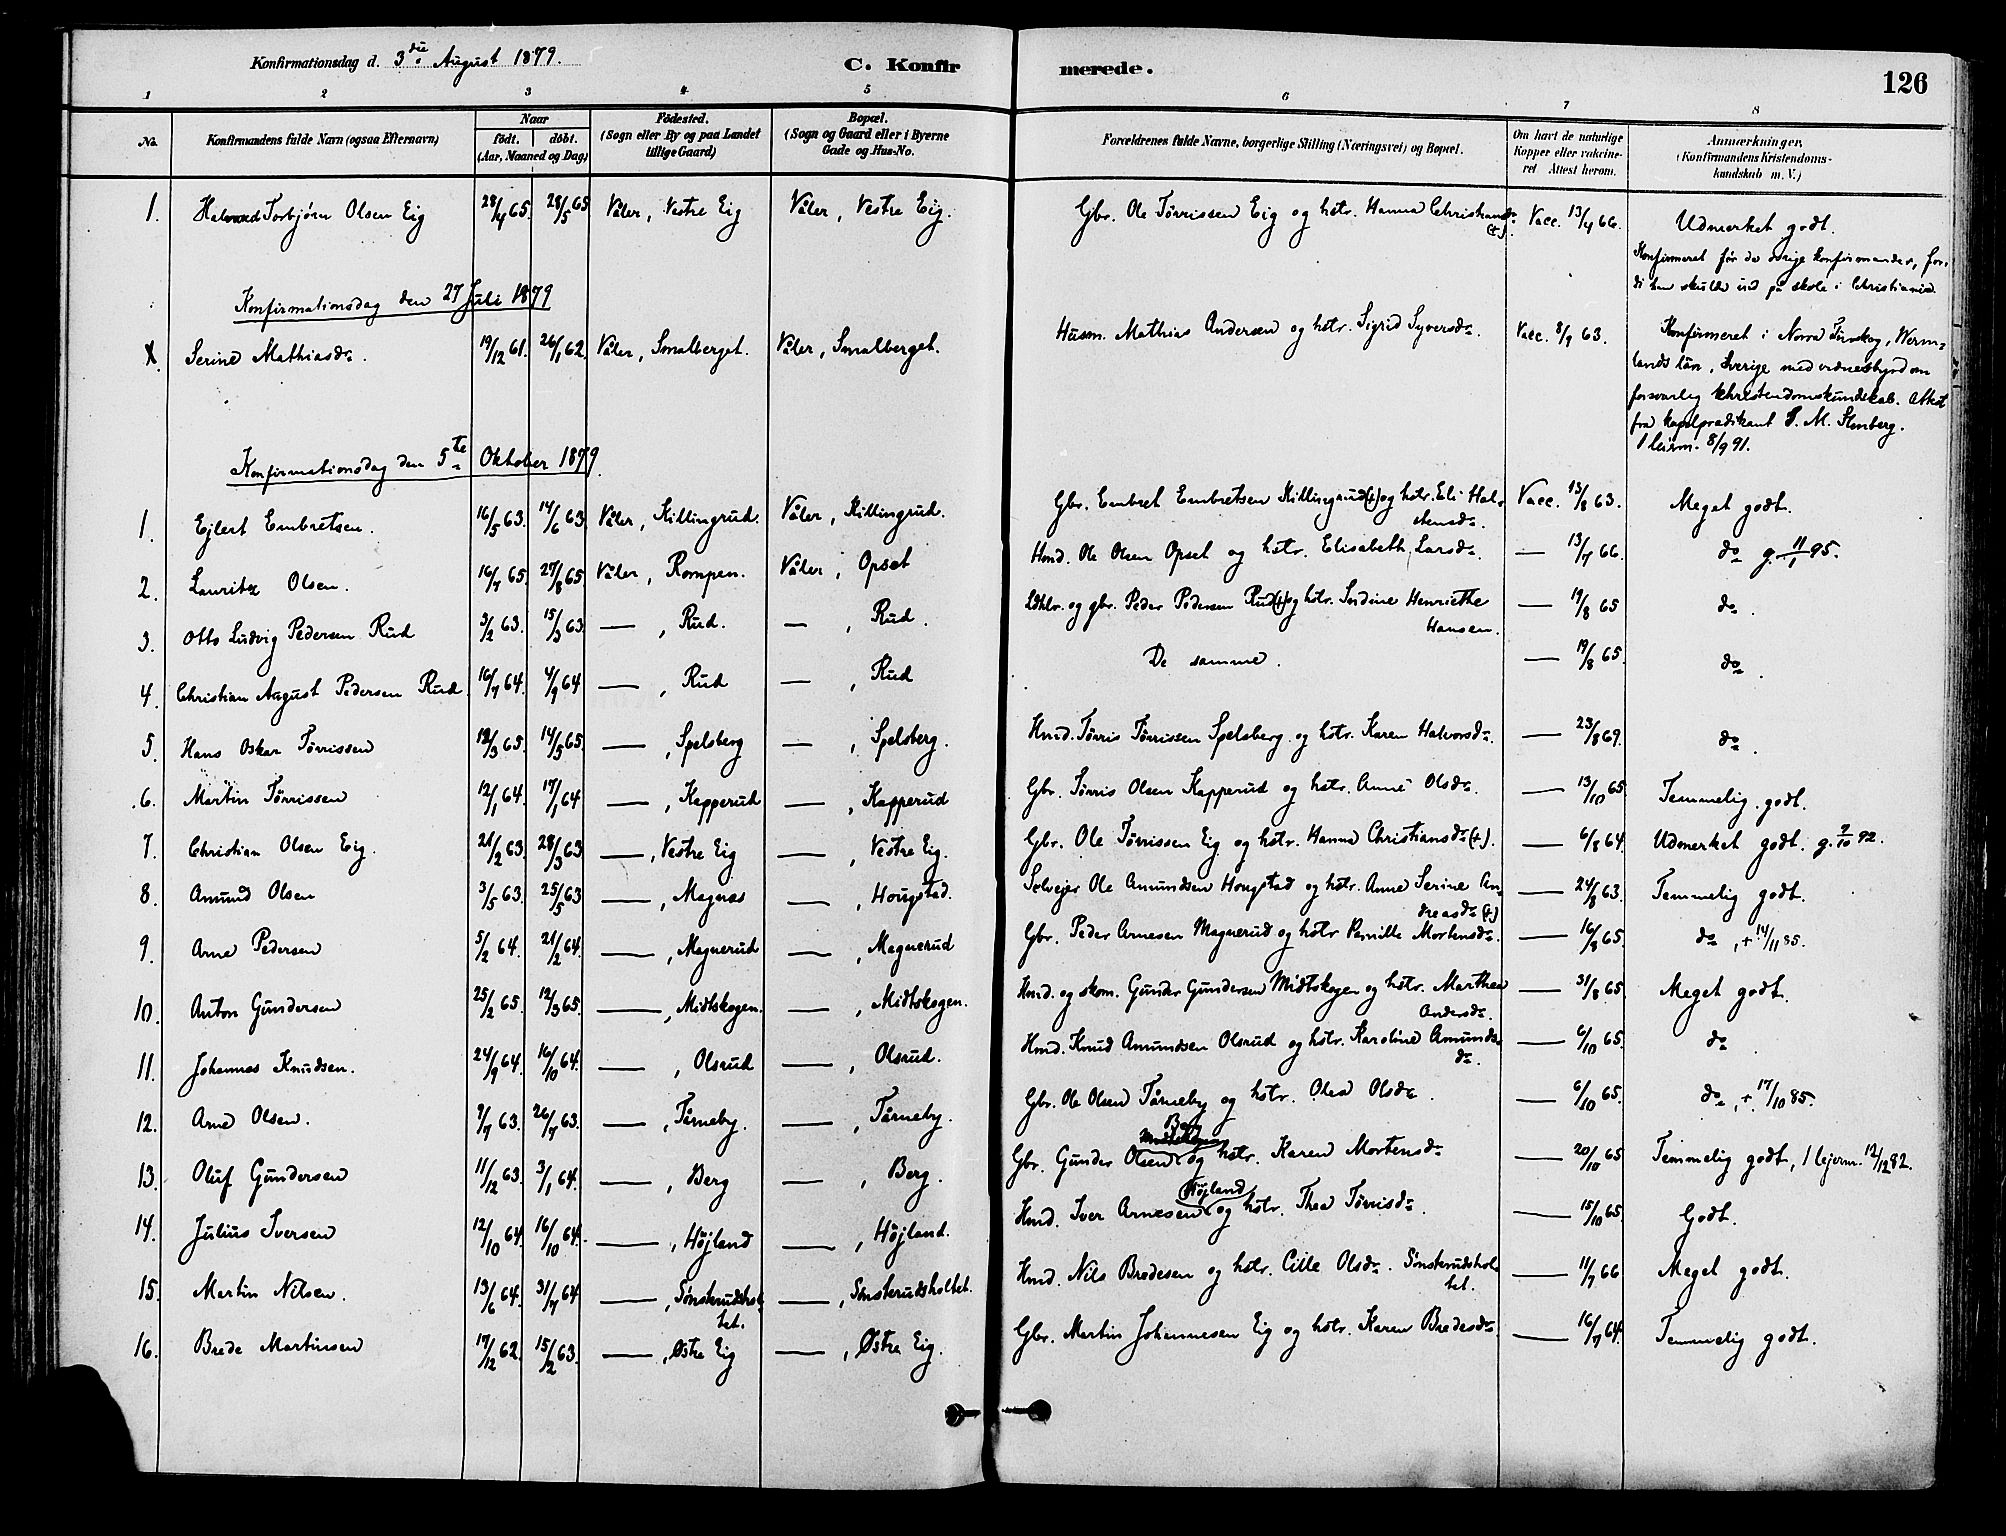 Konfirmationsdag d. 3die August 1879. C. Konfirmerede. 126
1 2 3 4 5 6 7 8
No. Konfirmandens fulde Navn (ogsaa Efternavn) Naar födt. döbt. (Aar, Maaned og Dag) Födested. (Sogn eller By og paa Landet tillige Gaard) Bopæl. (Sogn og Gaard eller i Byerne Gade og Hus-No. Forældrenes fulde Navne, borgerlige Stilling (Næringsvei) og Bopæl. Om havt de naturlige Kopper eller vakcineret Attest herom. Anmærkninger, (Konfirmandens Kristendomskundskab m. V.)
1. Halvard Torbjørn Olsen Eig 28/4 65. 28/5 65 Våler, Vestre Eig Våler, Vestre Eig. Gbr. Ole Tørrissen Eig og hstr. Hanna Christiansdr. (+). Vacc. 13/4 66. Udmerket godt.
Konfirmeret før de øvrige konfirmander, for-
di han skulde ind på skole i Christiania.
Konfirmationsdag den 27 Juli 1879
X. Serine Mathiasdr. 19/12 61. 26/1 62. Våler, Smalberget. Våler, Smalberget. Husm. Mathias Andersen og hstr. Sigrid Syversdr. Vacc. 8/9 63. Konfirmeret i Norra Finskog, Werm-
lands län, Sverige med vidnesbyrd om
forsvarlig Christendomskundskab. Attest
fra kapelprædikant M. Stenberg.
1 leirm. 8/9 91.
Konfirmationsdag den 5te Oktober 1879.
1. Ejlert Embretsen. 16/5 63. 14/6 63 Våler, Killingrud. Våler, Killingrud. Gbr. Embret Embretsen Killingrud (+) og hstr. Eli Hal-
stensdr. Vacc. 13/8 63. Meget godt.
2. Lauritz Olsen. 16/7 65. 27/8 65 Våler, Rompen. Våler, Opset Hmd. Ole Olsen Opset og hstr. Elisabeth Larsdr. — 13/7 66. do g. 11/1 95.
3. Otto Ludvig Pedersen Rud 3/2 63. 15/3 63 —, Rud. —, Rud. og gbr. Peder Pedersen Rud (+) og hstr. Serdine Henriethe
Hansen. — 19/8 65 do.
4. Christian August Pedersen Rud 16/7 64. 4/9 64 —, Rud —, Rud De samme. — 19/8 65. do.
5. Hans Oskar Tørrissen 12/3 65. 14/5 65. —, Spelsberg —, Spelsberg. Hmd. Tørris Tørrissen Spelsberg og hstr. Karen Halvorsdr. — 23/8 69. do.
6. Martin Tørrissen 12/1 64. 17/1 64 —, Kapperud —, Kapperud Gbr. Tørris Olsen Kapperud og hstr. Anne Olsdr. — 13/10 65. Temmelig godt.
7. Christian Olsen Eig. 21/2 63. 28/3 63 —, Vestre Eig —, Vestre Eig. Gbr. Ole Tørrissen Eig og hstr. Hanna Christiansdr (+). — 6/8 64. Udmerket godt. g. 7/10 92.
8. Amund Olsen 3/5 63. 25/5 63 —, Magnæs —, Hougstad. Selvejer Ole Amundsen Hougstad og hstr. Anne Serine An-
dreasdr (+) — 24/8 63. Temmelig godt.
9. Arne Pedersen 5/2 64. 21/2 64. —, Magnerud —, Magnerud Gbr. Peder Arnesen Magnerud og hstr Pernille Mortensdr. — 16/8 65. do, + 14/11 85.
10. Anton Gundersen 25/2 65. 12/3 65. —, Midtskogen. —, Midtskogen. Hmd. og skom. Gunder Gundersen Midtskogen og hstr. Marthea
Andersdr. — 31/8 65. Meget godt.
11. Johannes Knudsen. 24/9 64. 16/10 64. —, Olsrud —, Olsrud. Hmd. Knud Amundsen Olsrud og hstr. Karoline Amunds-
dr. — 6/10 65. do.
12. Arne Olsen. 9/7 63. 26/7 63. —, Tårneby. —, Tårneby. Gbr. Ole Olsen Tårneby og hstr. Olea Olsdr. — 6/10 65. do, +. 17/10 85.
13. Oluf Gundersen 11/12 63. 3/1 64. —, Berg —, Berg. Gbr. Gunder Olsen Midtskogen Berg og hstr. Karen Mortensdr — 20/10 65 Temmelig godt, 1 lejerm. 12/12 82.
14. Julius Iversen 12/10 64. 16/10 64. —, Højland —, Højland. Hmd. Iver Arnesen Højland og hstr. Thea Tørrisdr. — 15/10 65. Godt.
15. Martin Nilsen. 13/6 64. 31/7 64 —, Sønsterudshol-
tet. —, Sønsterudsholtet. Hmd. Nils Bredesen og hstr. Cille Olsdr. Sønsterudshol-
tet. — 11/7 66 Meget godt.
16. Brede Martinsen 17/12 62. 15/2 63. —, Østre Eig —, Østre Eig. Gbr. Martin Johannesen Eig og hstr. Karen Bredesdr. — 16/7 64. Temmelig godt.